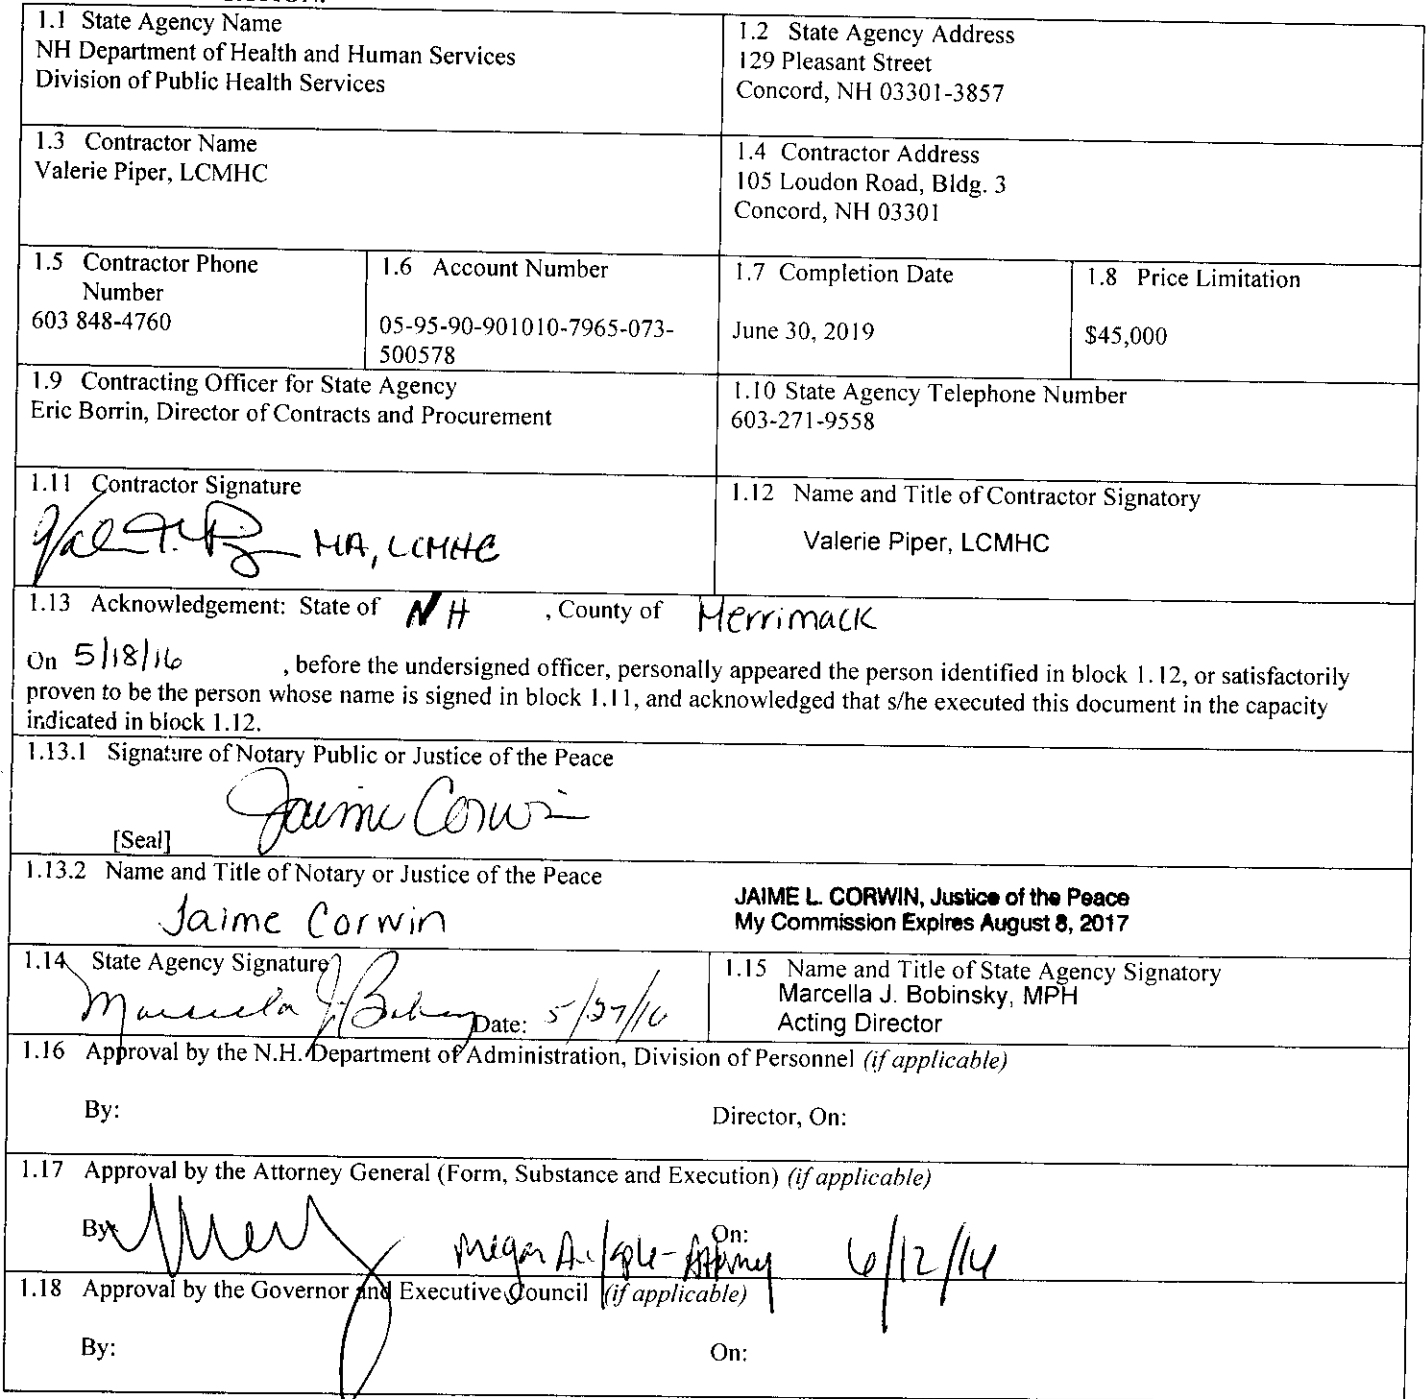 1.1 State Agency Name
NH Department of Health and Human Services
Division of Public Health Services
1.2 State Agency Address
129 Pleasant Street
Concord, NH 03301-3857
1.3 Contractor Name
Valerie Piper, LCMHC
1.4 Contractor Address
105 Loudon Road, Bldg. 3
Concord, NH 03301
1.5 Contractor Phone
Number
603 848-4760
1.6 Account Number
05-95-90-901010-7965-073-
500578
1.7 Completion Date
June 30, 2019
1.8 Price Limitation
$45,000
1.9 Contracting Officer for State Agency
Eric Borrin, Director of Contracts and Procurement
1.10 State Agency Telephone Number
603-271-9558
1.11 Contractor Signature
MA, LCMHC
1.12 Name and Title of Contractor Signatory
Valerie Piper, LCMHC
1.13 Acknowledgement: State of NH , County of Merrimack
On 5/18/16 , before the undersigned officer, personally appeared the person identified in block 1.12, or satisfactorily
proven to be the person whose name is signed in block 1.11, and acknowledged that s/he executed this document in the capacity
indicated in block 1.12.
1.13.1 Signature of Notary Public or Justice of the Peace
Jaime Corwin
[Seal]
1.13.2 Name and Title of Notary or Justice of the Peace
Jaime Corwin
JAIME L. CORWIN, Justice of the Peace
My Commission Expires August 8, 2017
1.14 State Agency Signature
Marcella J. Date: 5/27/16
1.15 Name and Title of State Agency Signatory
Marcella J. Bobinsky, MPH
Acting Director
1.16 Approval by the N.H. Department of Administration, Division of Personnel (if applicable)
By: Director, On:
1.17 Approval by the Attorney General (Form, Substance and Execution) (if applicable)
By: Megan A. - Attorney On: 6/12/16
1.18 Approval by the Governor and Executive Council (if applicable)
By: On: